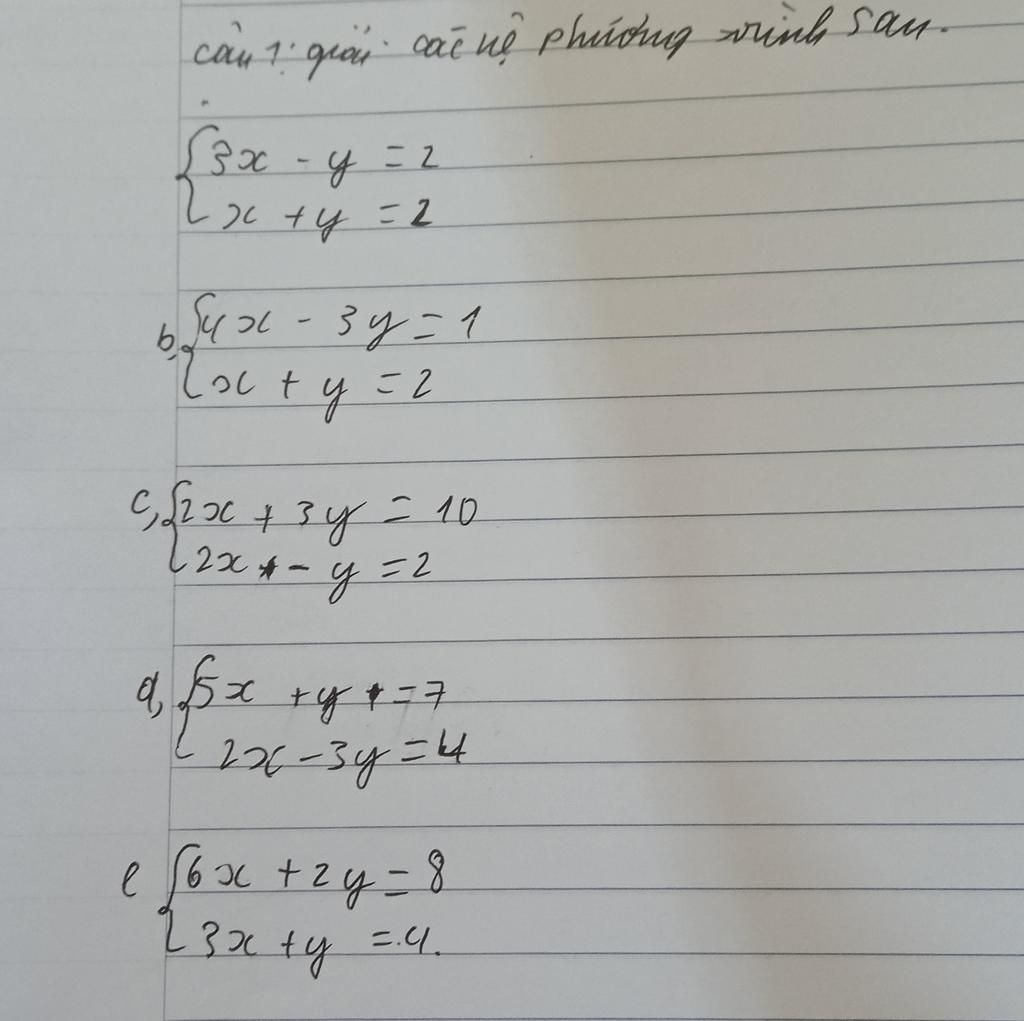 câu 1: giải các hệ phương trình sau.
{3x - y = 2
x + y = 2
b, {4x - 3y = 1
x + y = 2
c, {2x + 3y = 10
2x - y = 2
d, {5x + y = 7
2x - 3y = 4
e {6x + 2y = 8
3x + y = 4.